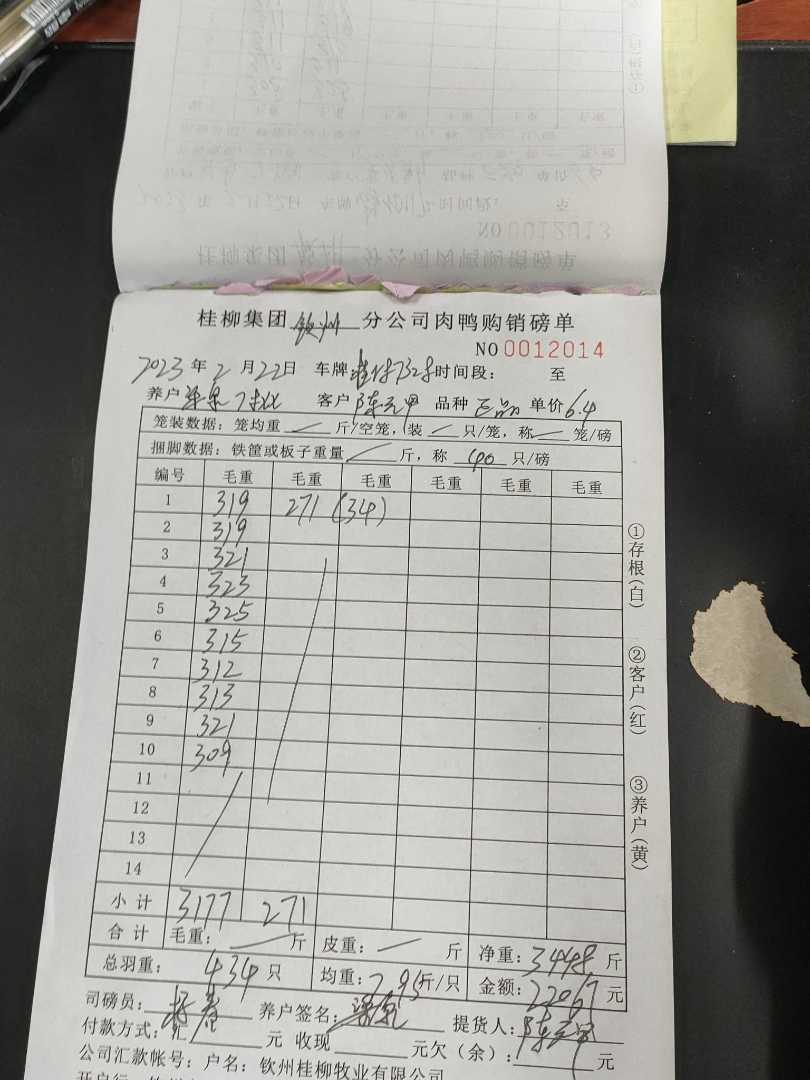 桂柳集团 钦州 分公司肉鸭购销磅单
NO 0012014
2023 年 2 月 22 日 车牌 时间段： 至
养户 客户 陈元甲 品种 正品 单价 6.4
笼装数据：笼均重 斤/空笼，装 只/笼，称 笼/磅
捆脚数据：铁筐或板子重量 斤，称 40 只/磅
编号 毛重 毛重 毛重 毛重 毛重 毛重
1 319 271 (34)
2 319
3 321
4 323
5 325
6 315
7 312
8 313
9 321
10 309
11
12
13
14
小计 3177 271
合计 毛重： 斤 皮重： 斤 净重：3448 斤
总羽重： 434 只 均重：7.95 斤/只 金额：22067 元
司磅员： 养户签名： 提货人：陈元甲
付款方式：汇 元 收现 元欠（余）： 元
公司汇款帐号：户名：钦州桂柳牧业有限公司
①存根（白）
②客户（红）
③养户（黄）
NO 0012013